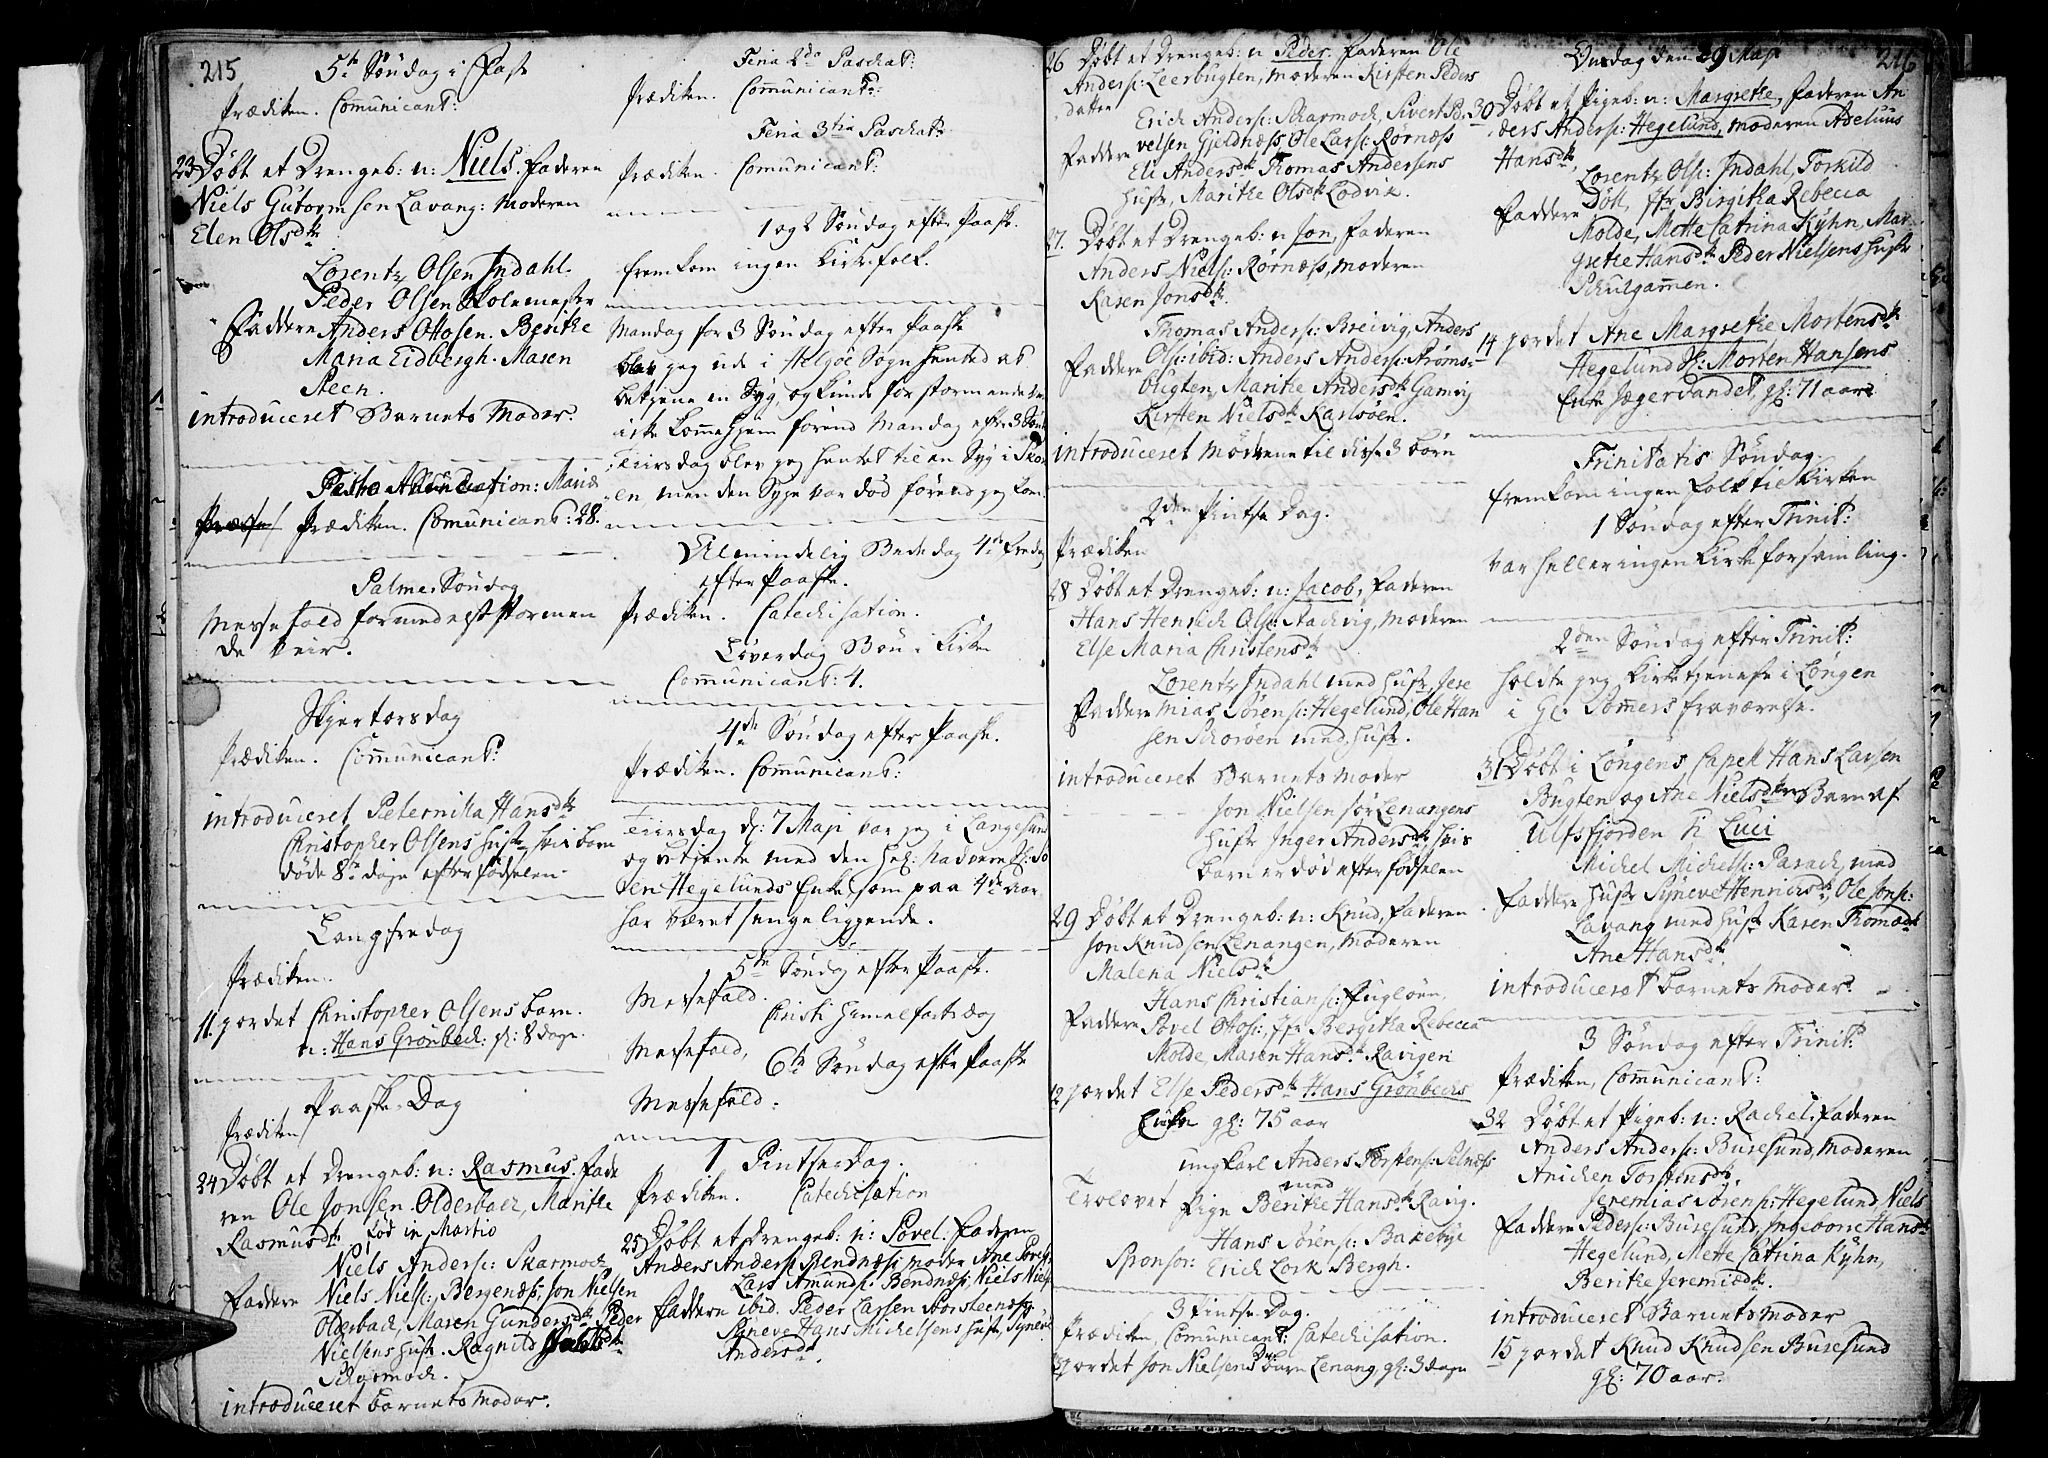 215
5te Søndag i Fast
Prædiken. Communicant:
23 Døbt et Drengeb: n: Niels. Faderen
Niels Gutormsen Lavang: Moderen
Elen Olsdtr
Lorentz Olsen Indahl.
Peder Olsen Skolemester
Faddere Anders Ottosen. Beritke
Maria Eidbergh. Maren
Steen.
introduceret Barnets Moder.
Festo Annunciation: Mariæ
Prædiken. Comunicant: 28.
Palme Søndag
Messefald formedelst stormen
de Veir.
Skjertorsdag
Prædiken. Communicant:
introduceret Peternilla Hansdtr
Christopher Olsens Hustr hvis barn
døde 8te dage efter fødselen.
Langfredag
Prædiken.
11 jordet Christopher Olsens barn.
n: Hans Grønbech. gl: 8 dage.
Paaske-Dag
Prædiken
24 Døbt et Drengeb: n: Rasmus. Fade
ren Ole Jonsen Olderbach, Maritke
Rasmusdtr fød in Martio
Niels Anders: Skarmoch
Faddere Niels Niels: Bergenes, Jon Nielsen
Olderbach, Maren Gundersdtr Peder
Nielsens Hustr. Ragnild
Scharmoch.
introduceret barnets Moder.
Feria 2da Paschat:
Prædiken. Communicant:
Feria 3tia Paschat:
Prædiken. Communicant:
1 og 2 Søndag efter Paaske
fremkom ingen Kirkefolk.
Mandag for 3 Søndag efter Paaske
blev jeg ude i Helgøe Sogn hented at
betjene en Syg og kunde for stormende
icke komme hjem førend Mandag efter 3 Sønd
Tiirsdag blev jeg hentet til en Syg i
en men den Syge var død førend jeg kom.
Almindelig Bededag 4de fredag
efter Paaske.
Prædiken. Catechisation.
Løverdag Bøn i Kirken
Communicant: 4.
4de Søndag efter Paaske.
Prædiken. Communicant:
Tiirsdag d: 7 Maji var jeg i Langesund
og betjente med den hel: Nadvere Sl: Sø
ren Hegelunds Enke som paa 4de aar
har været sengeliggende.
5te Søndag efter Paaske.
Messefald.
Christi Himelfartsdag
Messefald,
6te Søndag efter Paaske
Messefald.
1 Pintsedag.
Prædiken. Catechisation
25 Døbt et drengeb: n: Povel. Faderen
Anders Anders: Bendnæs: moder Ane Povels
Lars Amunds: Bendnæs: Niels Niels:
Faddere ibid. Peder Larsen Storsteenes
Synneve Hans Michelsens Hustr, Synneve
Andersdtr.
26 Døbt et Drengeb: n Peder. Faderen Ole
Anders: Leerbugten, Moderen Kirsten Peders
datter
Erich Anders: Skarmoch, Sivert Po
Faddere velsen Gjeldness, Ole Lars: Rørness
Eli Andersdtr Thomas Andersens
Hustr, Maritke Olsdtr Lodvik.
27. Døbt et Drengeb: n Jon, Faderen
Anders Niels: Rørness, Moderen
Karen Jonsdtr.
Thomas Anders: Breivig, Anders
Faddere Ols: ibid: Anders Anders: Strøms
bugten, Maritke Andersdtr Gamvig
Kirsten Nielsdtr Karlsøen.
introduceret Mødrene til disse 3 børn
2den Pintse Dag.
Prædiken
28 Døbt et Drengeb: n: Jacob, Faderen
Hans Henrich Ols: Stachvig, Moderen
Else Maria Christensdtr
Lorentz Indahl med Hustr, Jere
Faddere mias Sørens: Hegelund, Ole Han
sen Schorøen med Hustr.
introduceret Barnets Moder
Jon Nielsen Sørlenangens
Hustr Inger Andersdtr, hvis
barn er død efter fødselen
29 Døbt et Drengeb: n: Knud, Faderen
Jon Knudsen Lenangen, Moderen
Malena Nielsdtr
Hans Christians: Fugløen,
Faddere Povel Ottos: Jfr Bergitha Rebecca
Molde, Maren Hansdtr Ravigen
12 jordet Else Pedersdtr Hans Grønbechs
Enke gl: 75 aar
ungkarl Anders Torstens: Selnæss
med
Trolovet Pige Beritke Hansdtr Ravig.
Hans Sørens: Bakkebye
Sponsor: Erich Lork Bergh.
3 Pintse-Dag.
Prædiken, Communicant: Catechisation.
13 jordet Jon Nielsens barn Lenang. gl: 3 dage
Onsdag den 29 Maji 216
30 Døbt et Pigeb: n: Margretke, Faderen An
ders Anders: Hegelund, Moderen Adeluus
Hansdtr,
Lorentz Ols: Indahl, Torkild
Faddere Døll, Jfr Birgitha Rebecca
Molde, Mette Catrina Kyhn, Mar
gretke Hansdtr Peder Nielsens Hustr
Schulgammen.
14 jordet Ane Margretke Mortensdtr
Hegelund Sl: Morten Hansens
Enke Jægervandet, gl: 71 aar
Trinitatis Søndag
fremkom ingen folk til Kirken
1 Søndag efter Trinit:
var heller ingen Kirkeforsamling.
2den Søndag efter Trinit:
holdte jeg Kirketjeneste i Lyngen
i Hr. Sommers fraværelse.
31 Døbt i Lyngens Capel Hans Larsen
Bugten og Ane Nielsdtrs Barn af
Ulfsfjorden n: Luci
Michel Michels: Parach, med
Faddere Hustr Synevet Henricsdtr, Ole Jons:
Lavang med Hustr Karen Thomædtr
Ane Hansdtr
introduceret barnets Moder.
3 Søndag efter Trinit:
Prædiken, Communicant:
32 Døbt et Pigeb: n: Rachel. Faderen
Anders Anders: Buresund, Moderen
Anichen Torstensdtr.
Jeremias Sørens: Hegelund, Niels
Faddere Peders: Buresund, Ingeborre Hansdtr
Hegelund, Mette Catrina Kyhn,
Beritke Jeremiædtr.
introduceret Barnets Moder
15 jordet Knud Knudsen Buresund
gl: 70 aar.